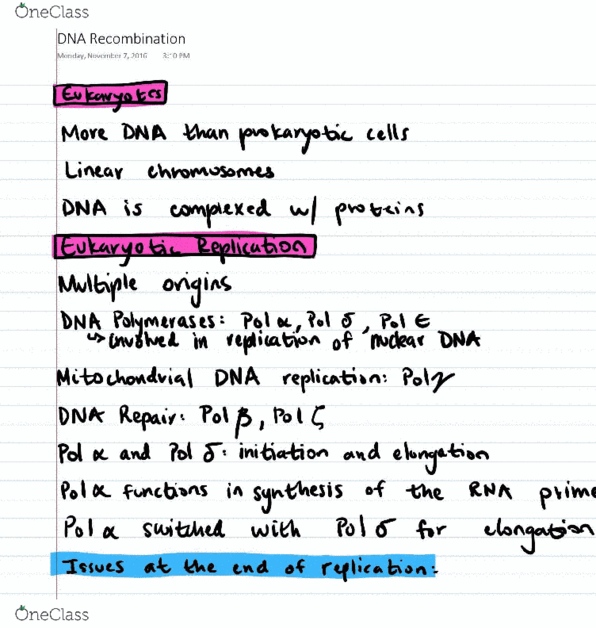 OneClass
DNA Recombination
Monday, November 7, 2016 3:10 PM
Eukaryotes
More DNA than prokaryotic cells
Linear chromosomes
DNA is complexed w/ proteins
Eukaryotic Replication
Multiple origins
DNA Polymerases: Pol α, Pol δ, Pol ε
↳ involved in replication of nuclear DNA
Mitochondrial DNA replication: Pol γ
DNA Repair: Pol β, Pol ζ
Pol α and Pol δ: initiation and elongation
Pol α functions in synthesis of the RNA prime
Pol α switched with Pol δ for elongation
Issues at the end of replication:
OneClass